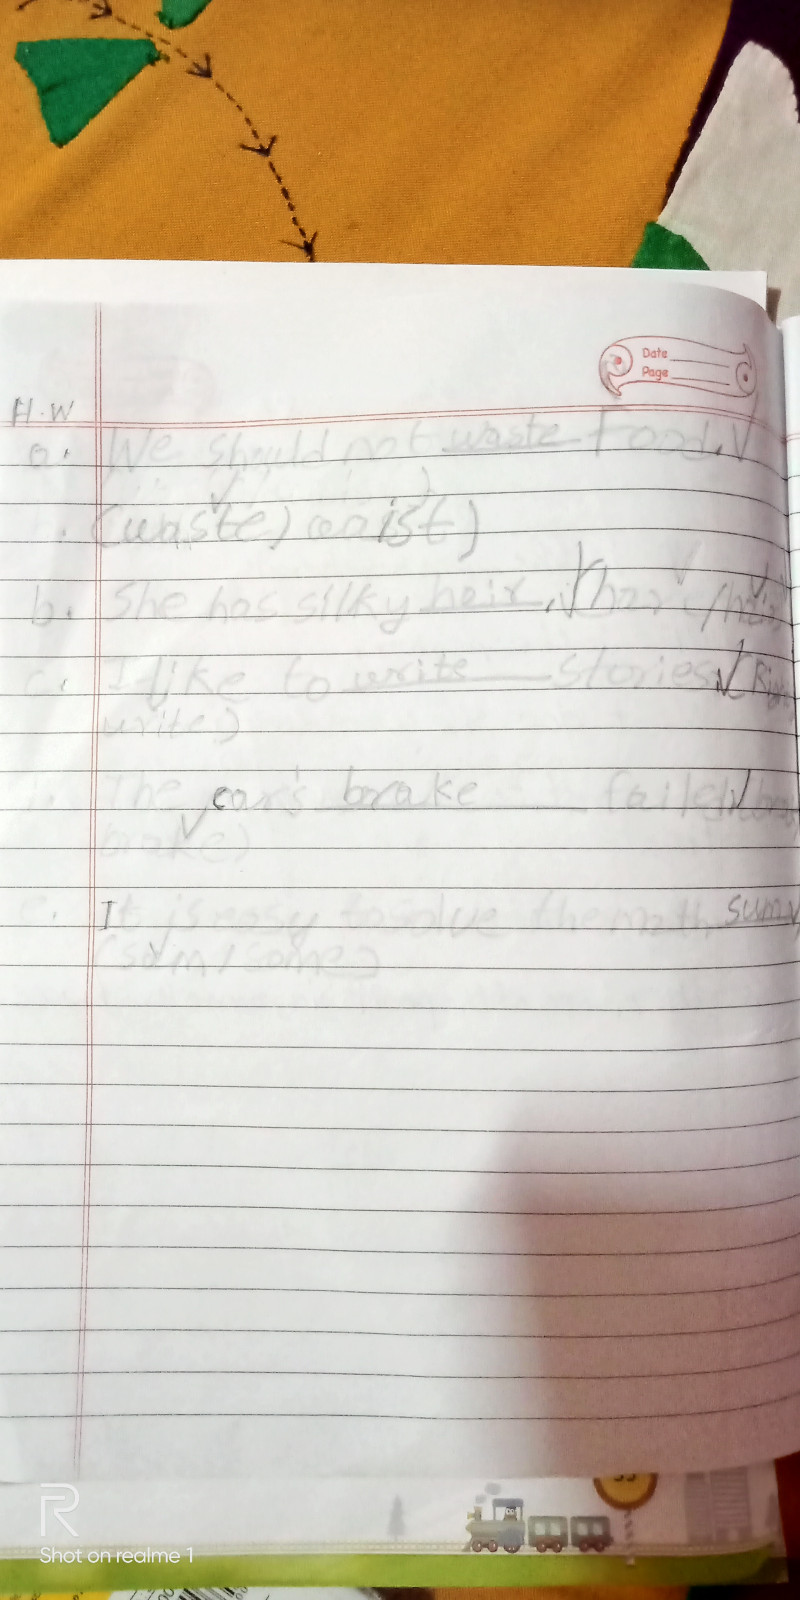 Date
Page
H.W
a. We should not waste Food.
(waste) waist)
b. She has silky heir.
c. I like to write stories.
write)
The car's brake failed
brake)
e. It is easy to solve the math sum
(sum/some)
Shot on realme 1